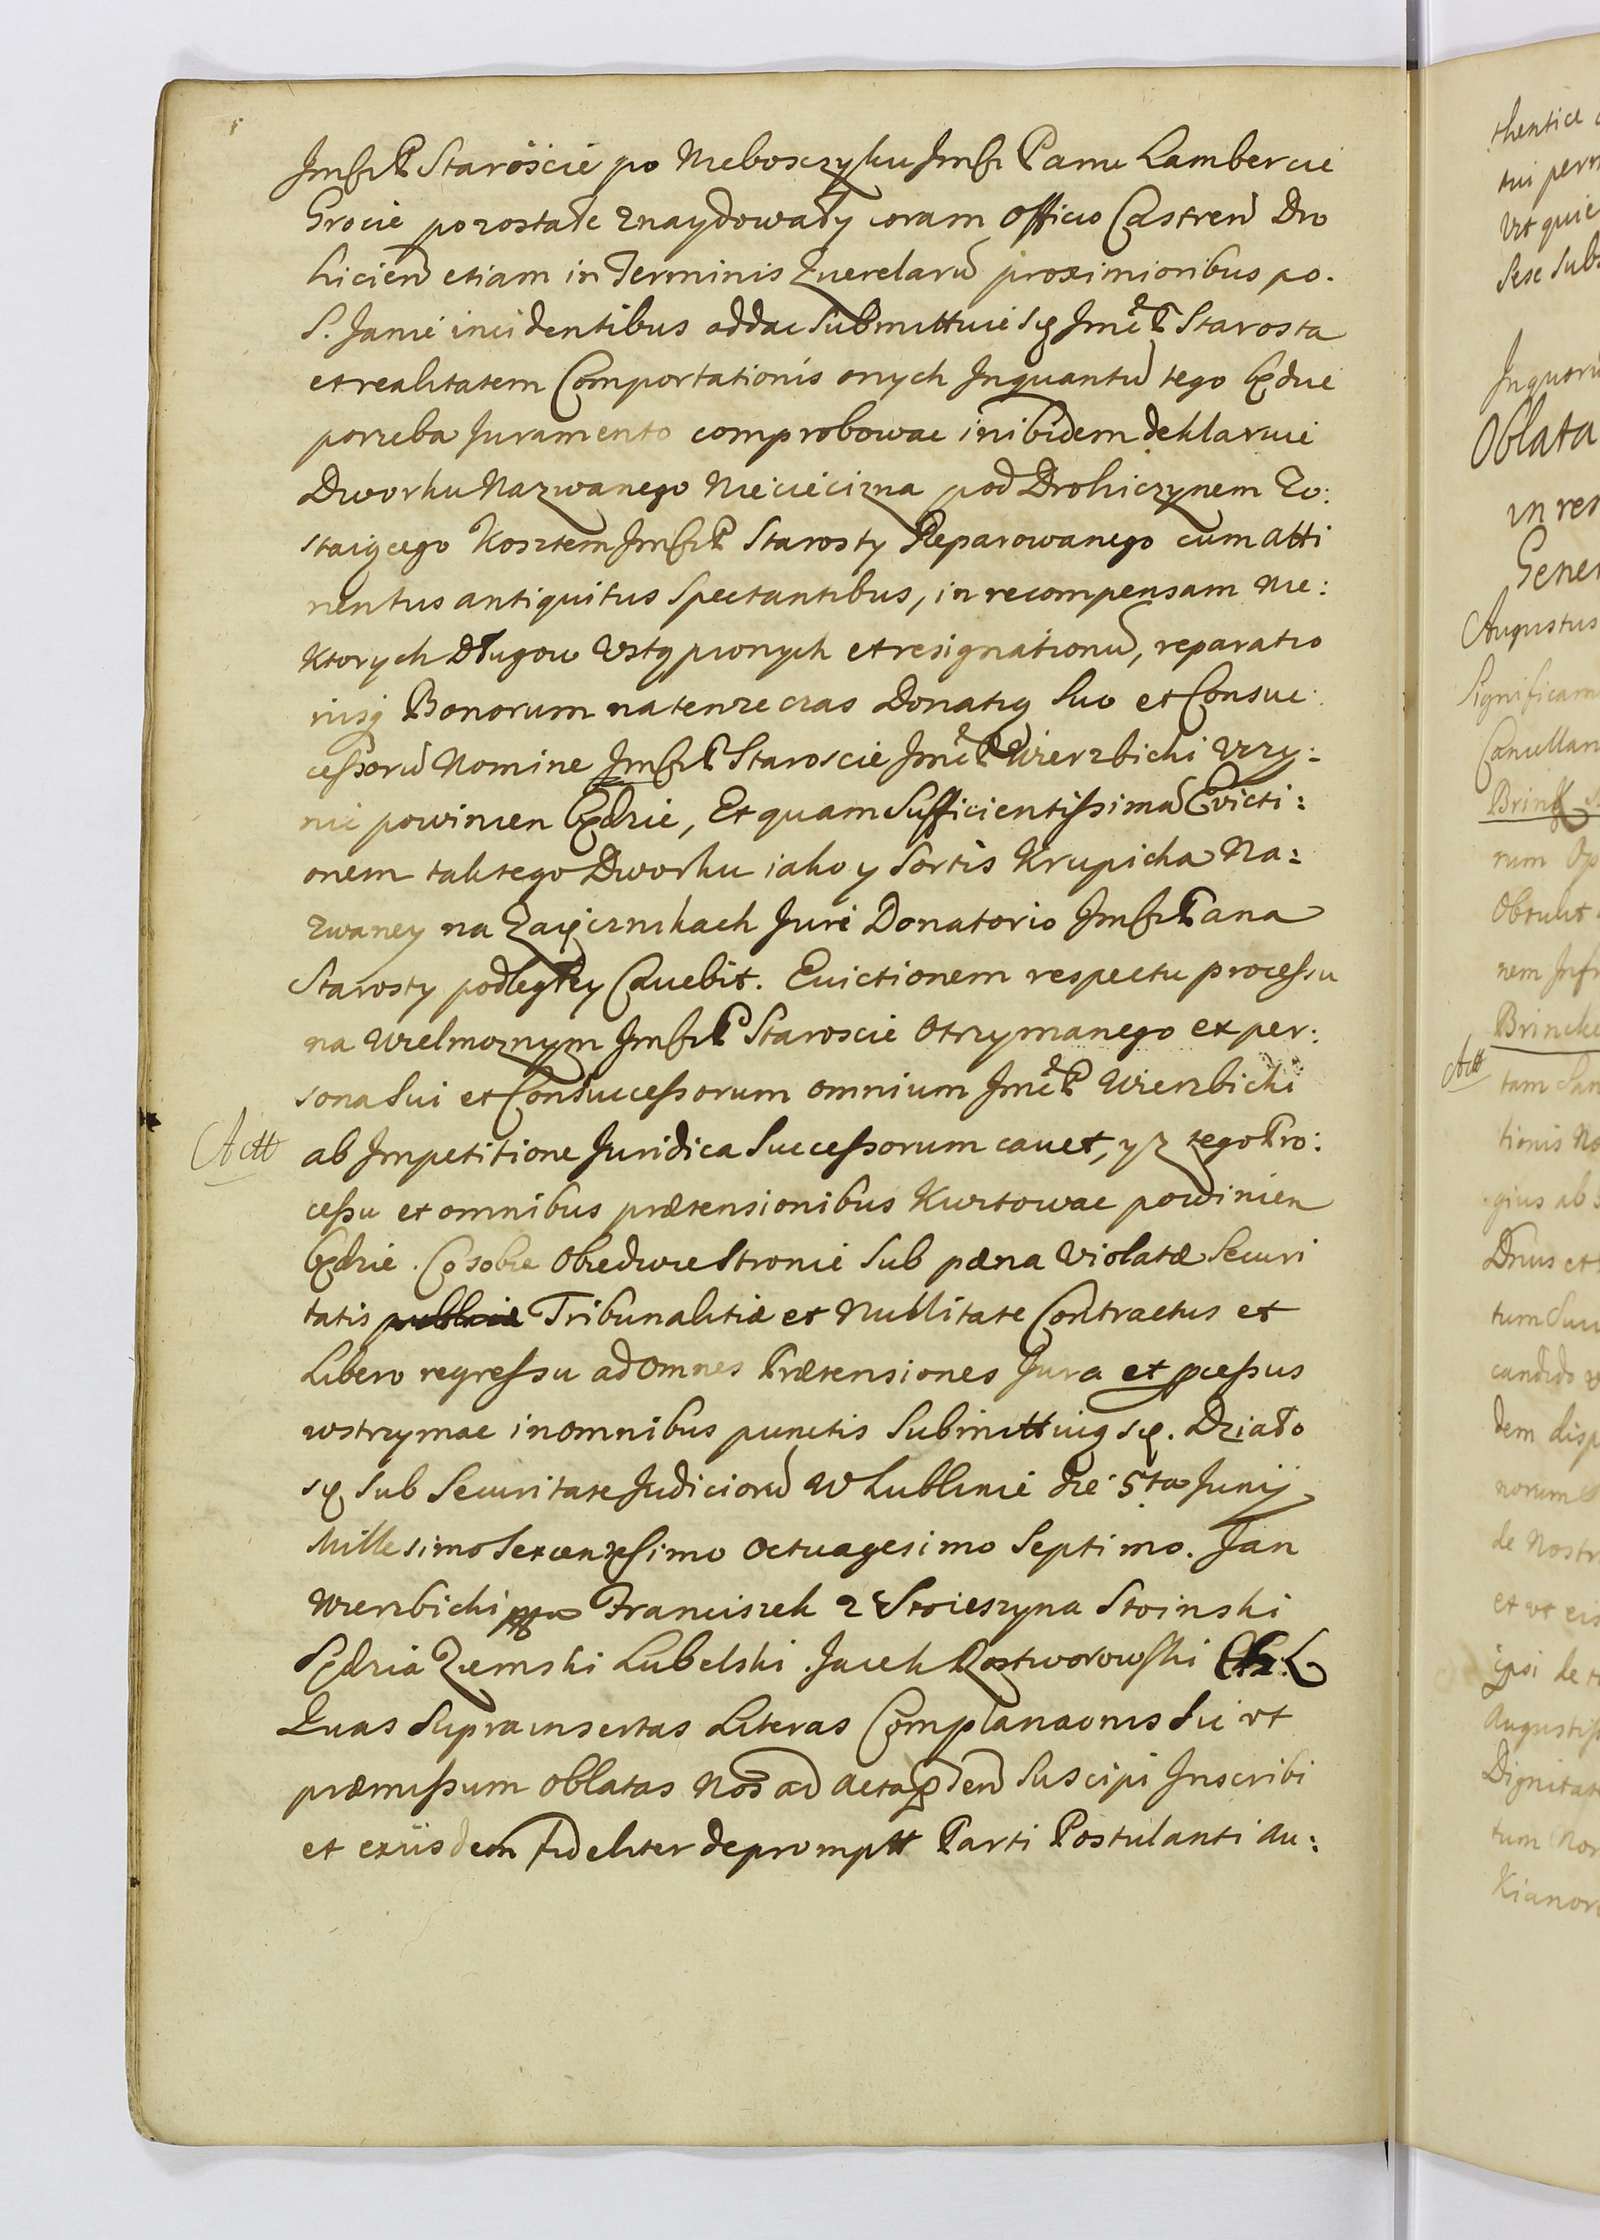 Jmści P Staroście po Nieboszczyku Jmści Panu Lambercie
Grocie pozostałe znaydowały coram Officio Castren Dro
hicien etiam in Terminis Querelaru proximioribus po.
S. Janie incidentibus oddac Submittuie się Jmć P Starosta
et realitatem Comportationis onych Inquantu tego będzie
potrzeba Juramento comprobowac inibidem deklaruie
Dworku Nazwanego Niecieczna pod Drohiczynem Zo:
staiącego Kosztem Jmści P Starosty Reparowanego cum atti
nentiis antiquitus Spectantibus, in recompensam Nie:
ktorych Długow Vstąpionych et resignationu, reparatio
nisq Bonorum natenze czas Donatią Suo et Consuc
cessoru Nomine Jmści P Staroscie Jmć P Wierzbicki Vczy:
nić powinien będzie, Et quam Sufficientissima Evicti:
onem tak tego Dworku iako y Sortis Krupicka Na:
zwaney na Zaięcznikach Jure Donatorio Jmści Pana
Starosty podległey Cauebit. Euictionem respectu processu
na Wielmoznym Jmści P Staroscie Otrzymanego ex per:
sona Sui et Consuccessorum omnium Jmć P Wierzbicki
Actt
ab Impetitione Juridica Successorum cauet, y z tego Pro:
cessu et omnibus prætensionibus Kwitowac powinien
będzie. Co sobie Obiedwie Stronie Sub pæna Violatæ Securi
tatis publicæ Tribunalitiæ et Nullitate Contractus et
Libero regressu ad Omnes Prætensiones Jura et pcessus
wstrzymac in omnibus punctis Submittuią się. Działo
się Sub Securitate Judicioru w Lublinie die 5ta Junij
Millesimo Sexcentesimo Octuagesimo Septimo. Jan
Wierzbicki Franciszek z Stoieszyna Stoinski
Sędzia Ziemski Lubelski. Jacek Rostworowski
Quas Suprainsertas Literas Complanaonis Sic vt
præmissum oblatas Nos ad acta pden Suscipi Inscribi
et exiisdem fideliter depromptt Parti Postulanti Au:
thentice
Vt quic
Sese Subs
Oblata
in res
Gener
Augustus
Significam
Cancellar
Brink
num
Obtulit
nem Infr
Brincke
Actt
tam San
tionis No
gius ab
Drius et
tum Suu
candido
dem disp
norum
de Nostr
et vt eis
ipsi de
Augustiss
Dignitat
tum Nor
Kianor